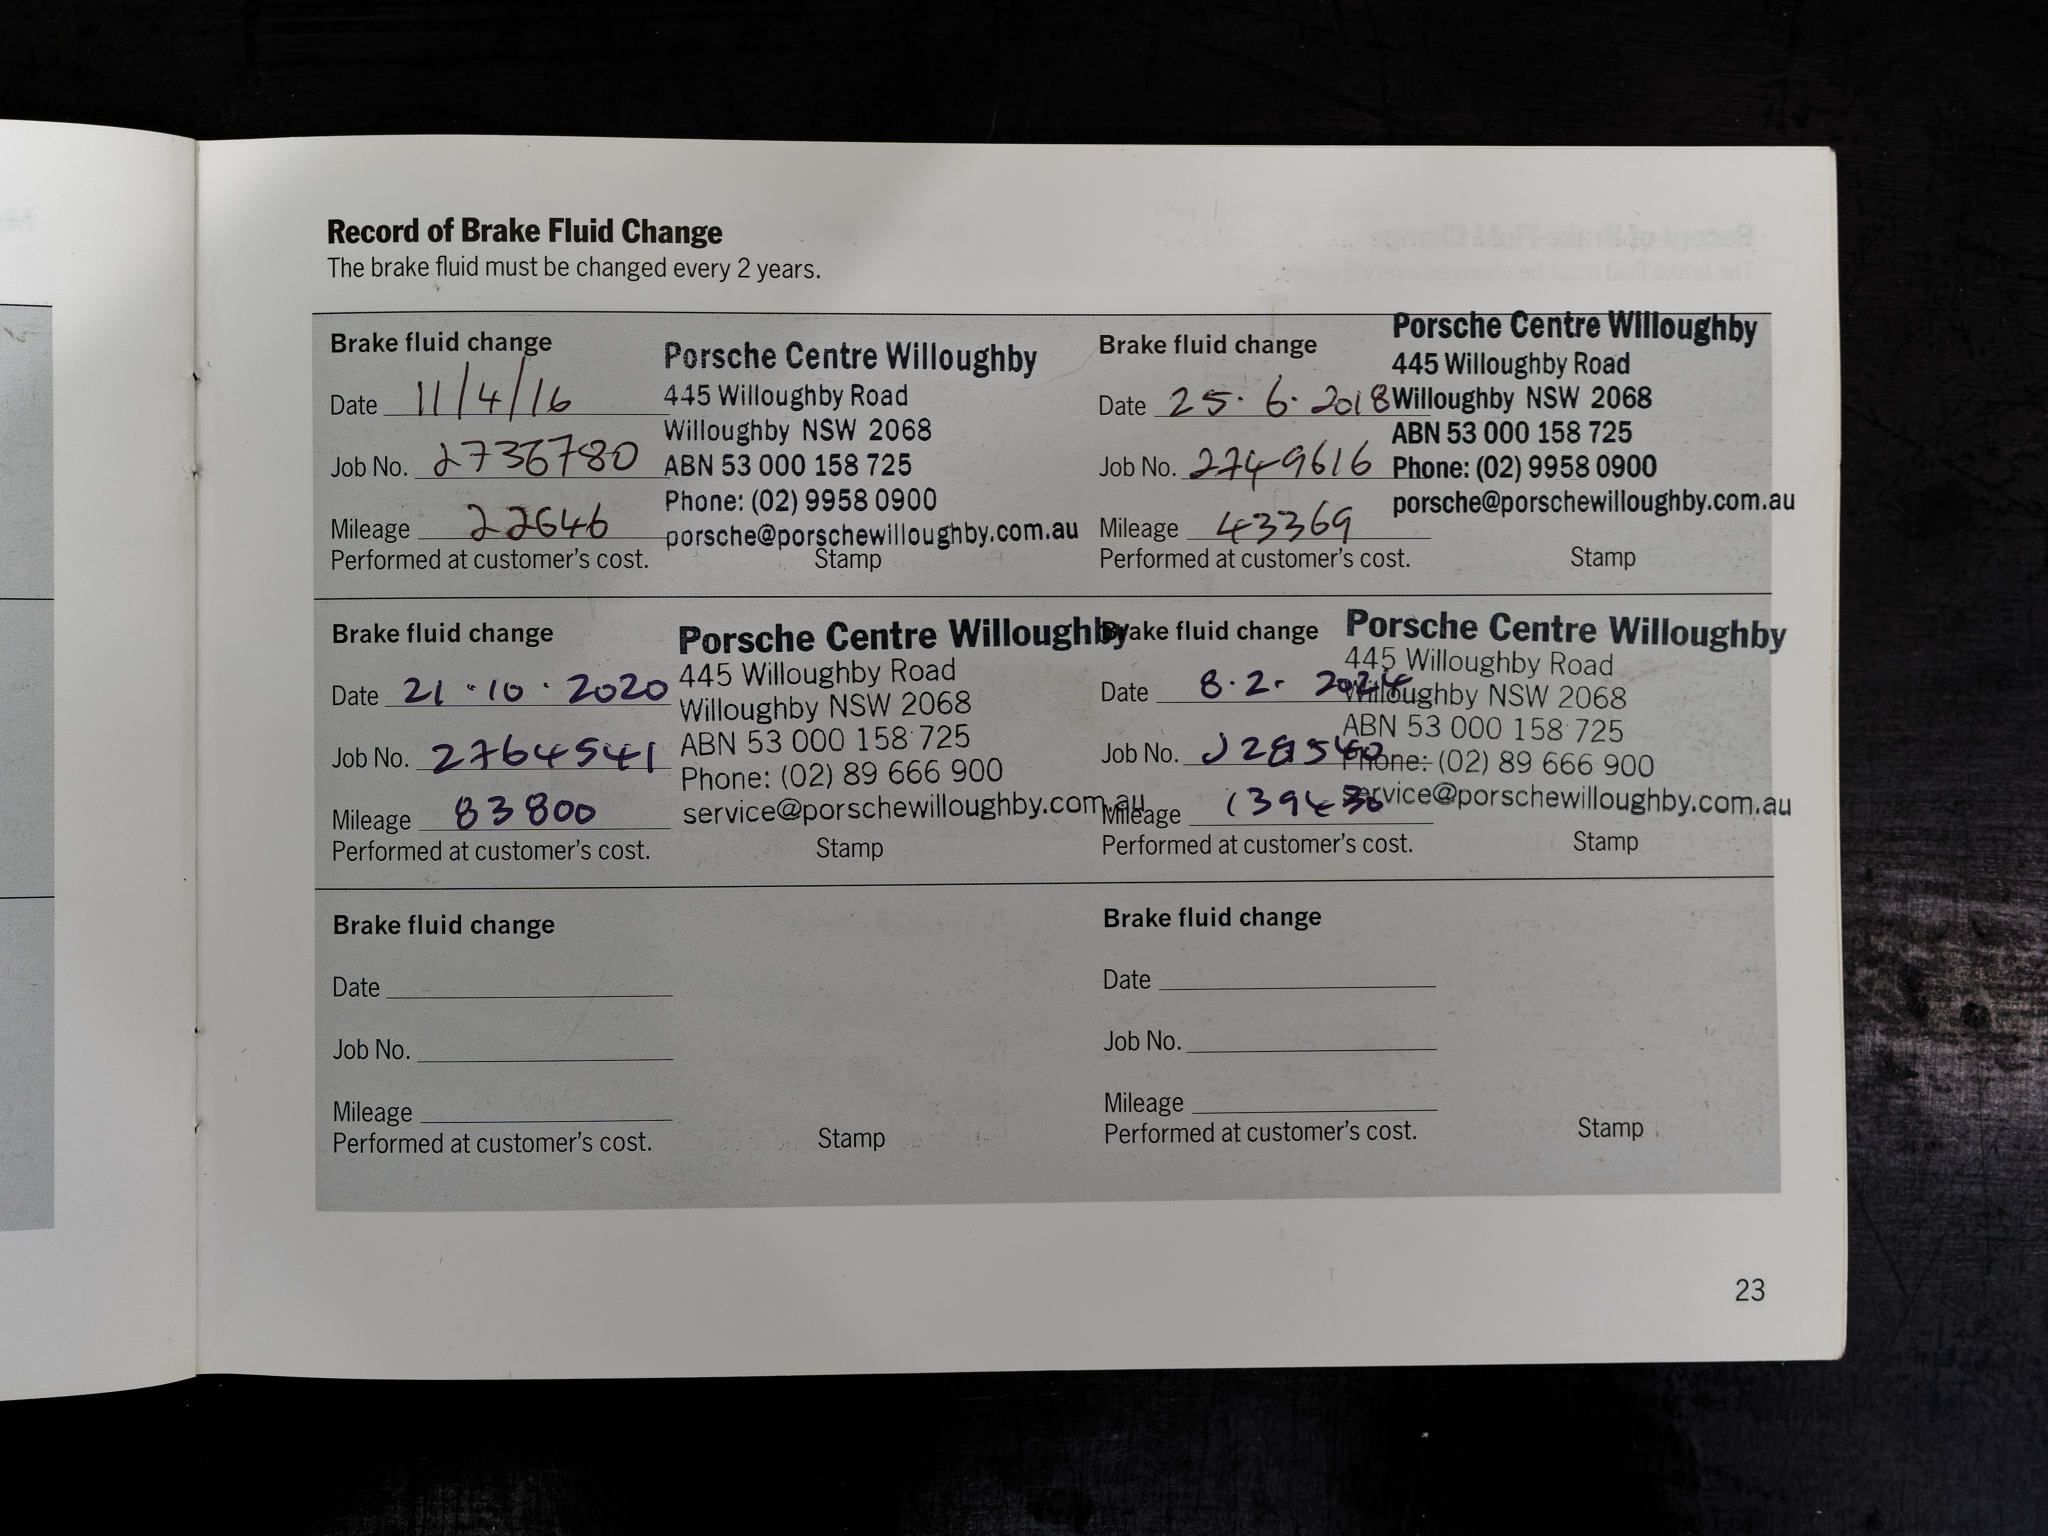 Record of Brake Fluid Change
The brake fluid must be changed every 2 years.
Brake fluid change
Date 11/4/16
Job No. 2736780
Mileage 22646
Performed at customer's cost.
Porsche Centre Willoughby
445 Willoughby Road
Willoughby NSW 2068
ABN 53 000 158 725
Phone: (02) 9958 0900
porsche@porschewilloughby.com.au
Stamp
Brake fluid change
Date 25.6.2018
Job No. 2749616
Mileage 43369
Performed at customer's cost.
Porsche Centre Willoughby
445 Willoughby Road
Willoughby NSW 2068
ABN 53 000 158 725
Phone: (02) 9958 0900
porsche@porschewilloughby.com.au
Stamp
Brake fluid change
Date 21.10.2020
Job No. 2764541
Mileage 83800
Performed at customer's cost.
Porsche Centre Willoughby
445 Willoughby Road
Willoughby NSW 2068
ABN 53 000 158 725
Phone: (02) 89 666 900
service@porschewilloughby.com.au
Stamp
Brake fluid change
Date 8.2.2024
Job No.
Mileage 139430
Performed at customer's cost.
Porsche Centre Willoughby
445 Willoughby Road
Willoughby NSW 2068
ABN 53 000 158 725
Phone: (02) 89 666 900
service@porschewilloughby.com.au
Stamp
Brake fluid change
Date
Job No.
Mileage
Performed at customer's cost.
Stamp
Brake fluid change
Date
Job No.
Mileage
Performed at customer's cost.
Stamp
23